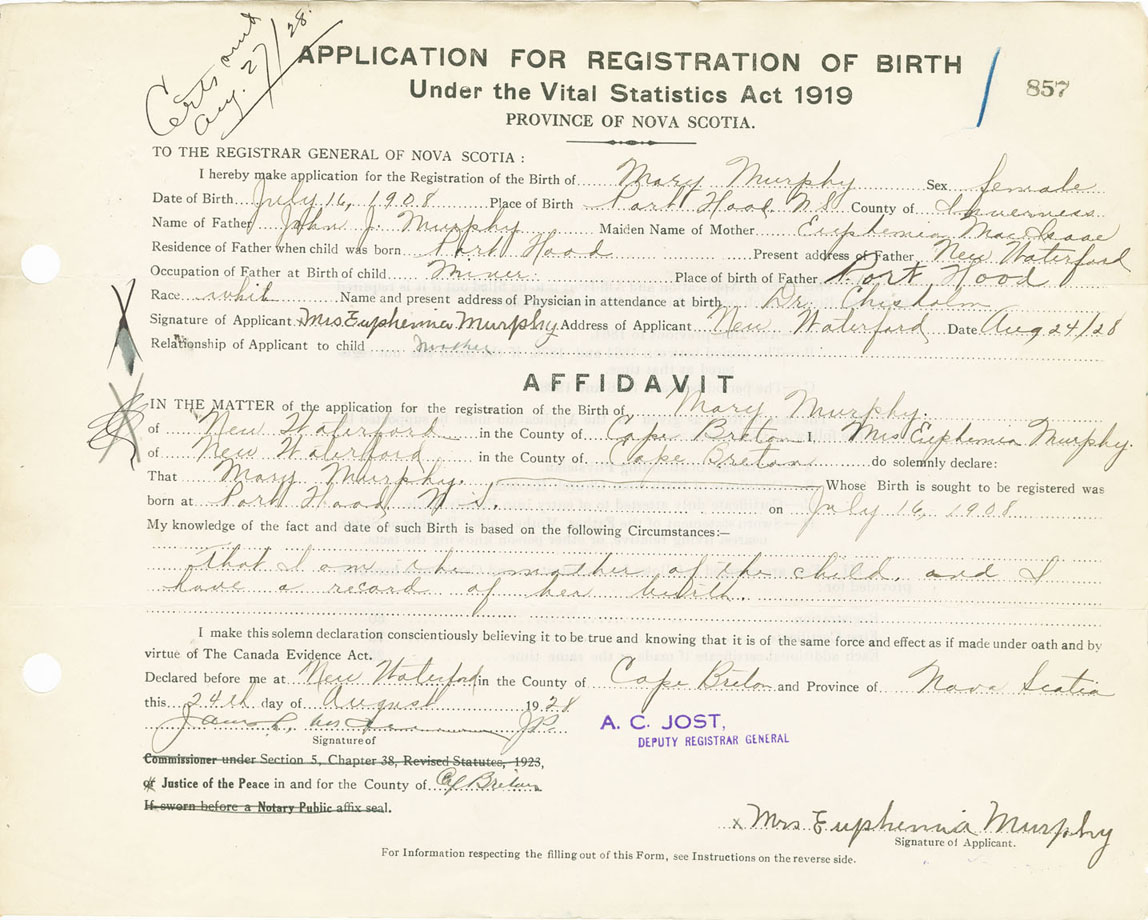 Certs sent
Aug. 27/28.
APPLICATION FOR REGISTRATION OF BIRTH
857
Under the Vital Statistics Act 1919
PROVINCE OF NOVA SCOTIA.
TO THE REGISTRAR GENERAL OF NOVA SCOTIA :
I hereby make application for the Registration of the Birth of Mary Murphy Sex female
Date of Birth July 16, 1908 Place of Birth Port Hood, N.S. County of Inverness
Name of Father John J. Murphy Maiden Name of Mother Euphemia MacIsaac
Residence of Father when child was born Port Hood Present address of Father, New Waterford
Occupation of Father at Birth of child Miner. Place of birth of Father Port Hood
Race white Name and present address of Physician in attendance at birth Dr. Chisholm
Signature of Applicant x Mrs. Euphemia Murphy Address of Applicant New Waterford Date Aug 24/28
Relationship of Applicant to child mother
AFFIDAVIT
IN THE MATTER of the application for the registration of the Birth of Mary Murphy.
of New Waterford in the County of Cape Breton I, Mrs Euphemia Murphy.
of New Waterford in the County of Cape Breton do solemnly declare:
That Mary Murphy. Whose Birth is sought to be registered was
born at Port Hood, N.S. on July 16, 1908
My knowledge of the fact and date of such Birth is based on the following Circumstances:—
that I am the mother of the child, and I
have a record of her birth.
I make this solemn declaration conscientiously believing it to be true and knowing that it is of the same force and effect as if made under oath and by
virtue of The Canada Evidence Act.
Declared before me at New Waterford in the County of Cape Breton and Province of Nova Scotia
this 24th day of August 1928
J.P.
A. C. JOST,
DEPUTY REGISTRAR GENERAL
Signature of
Commissioner under Section 5, Chapter 38, Revised Statutes, 1923,
or Justice of the Peace in and for the County of C Breton
If sworn before a Notary Public affix seal.
x Mrs Euphemia Murphy
Signature of Applicant.
For Information respecting the filling out of this Form, see Instructions on the reverse side.